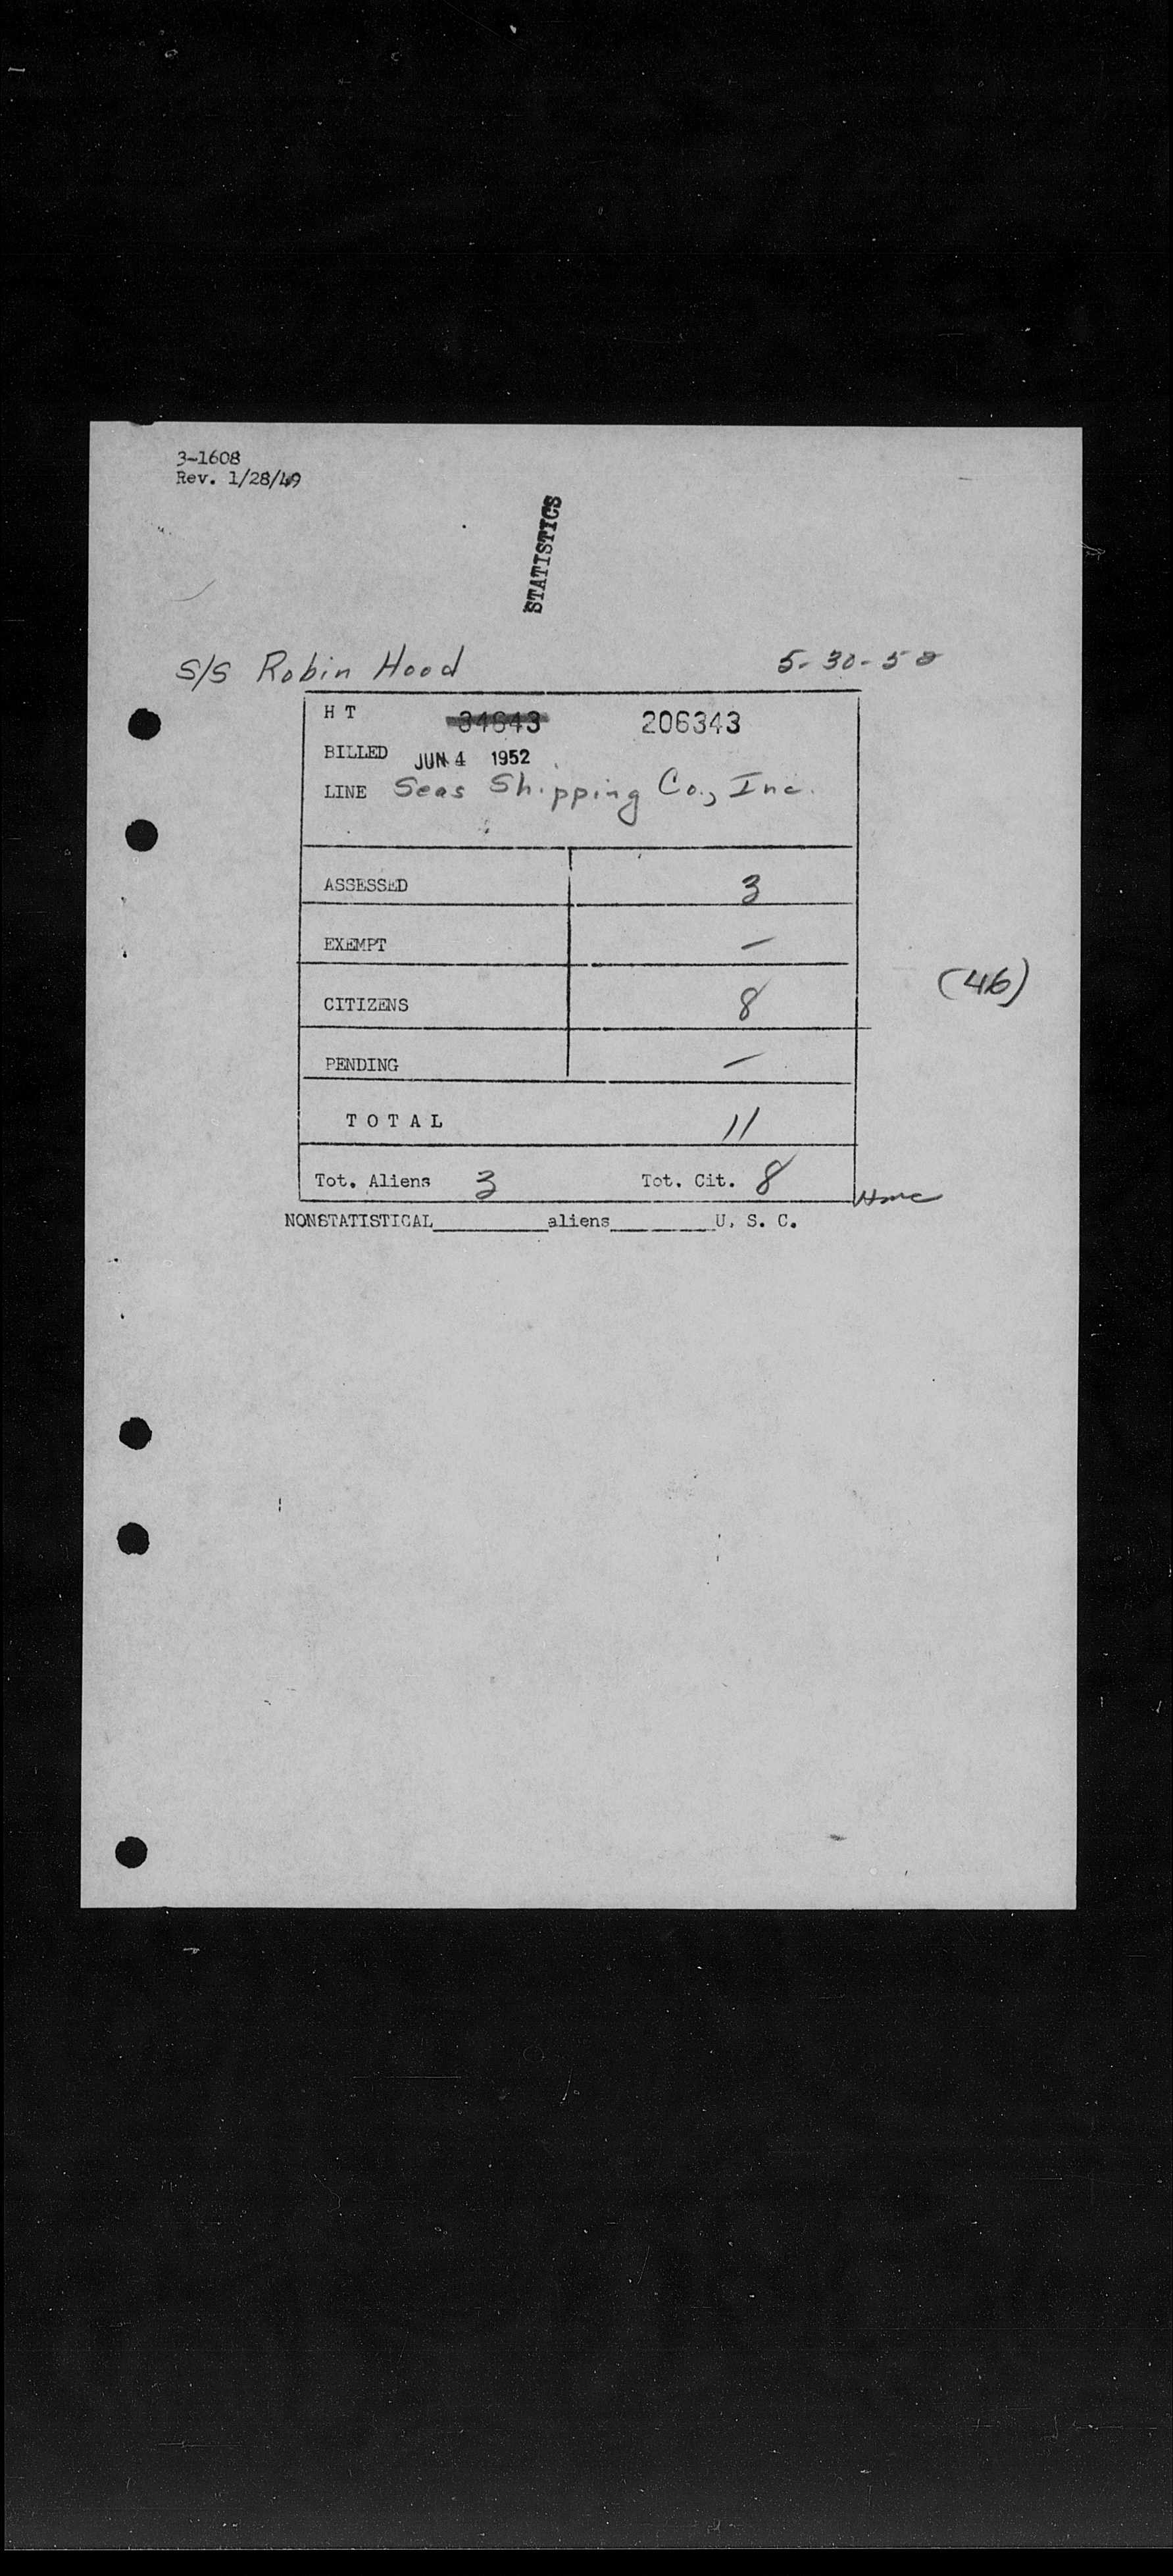 3-1608
Rev. 1/28/49
STATISTICS
S/S Robin Hood 5-30-52
H T 34843 206343
BILLED JUN 4 1952
LINE Seas Shipping Co., Inc.
ASSESSED 3
EXEMPT —
CITIZENS 8
(46)
PENDING —
T O T A L 11
Tot. Aliens 3 Tot. Cit. 8
NONSTATISTICAL__________aliens__________U. S. C.